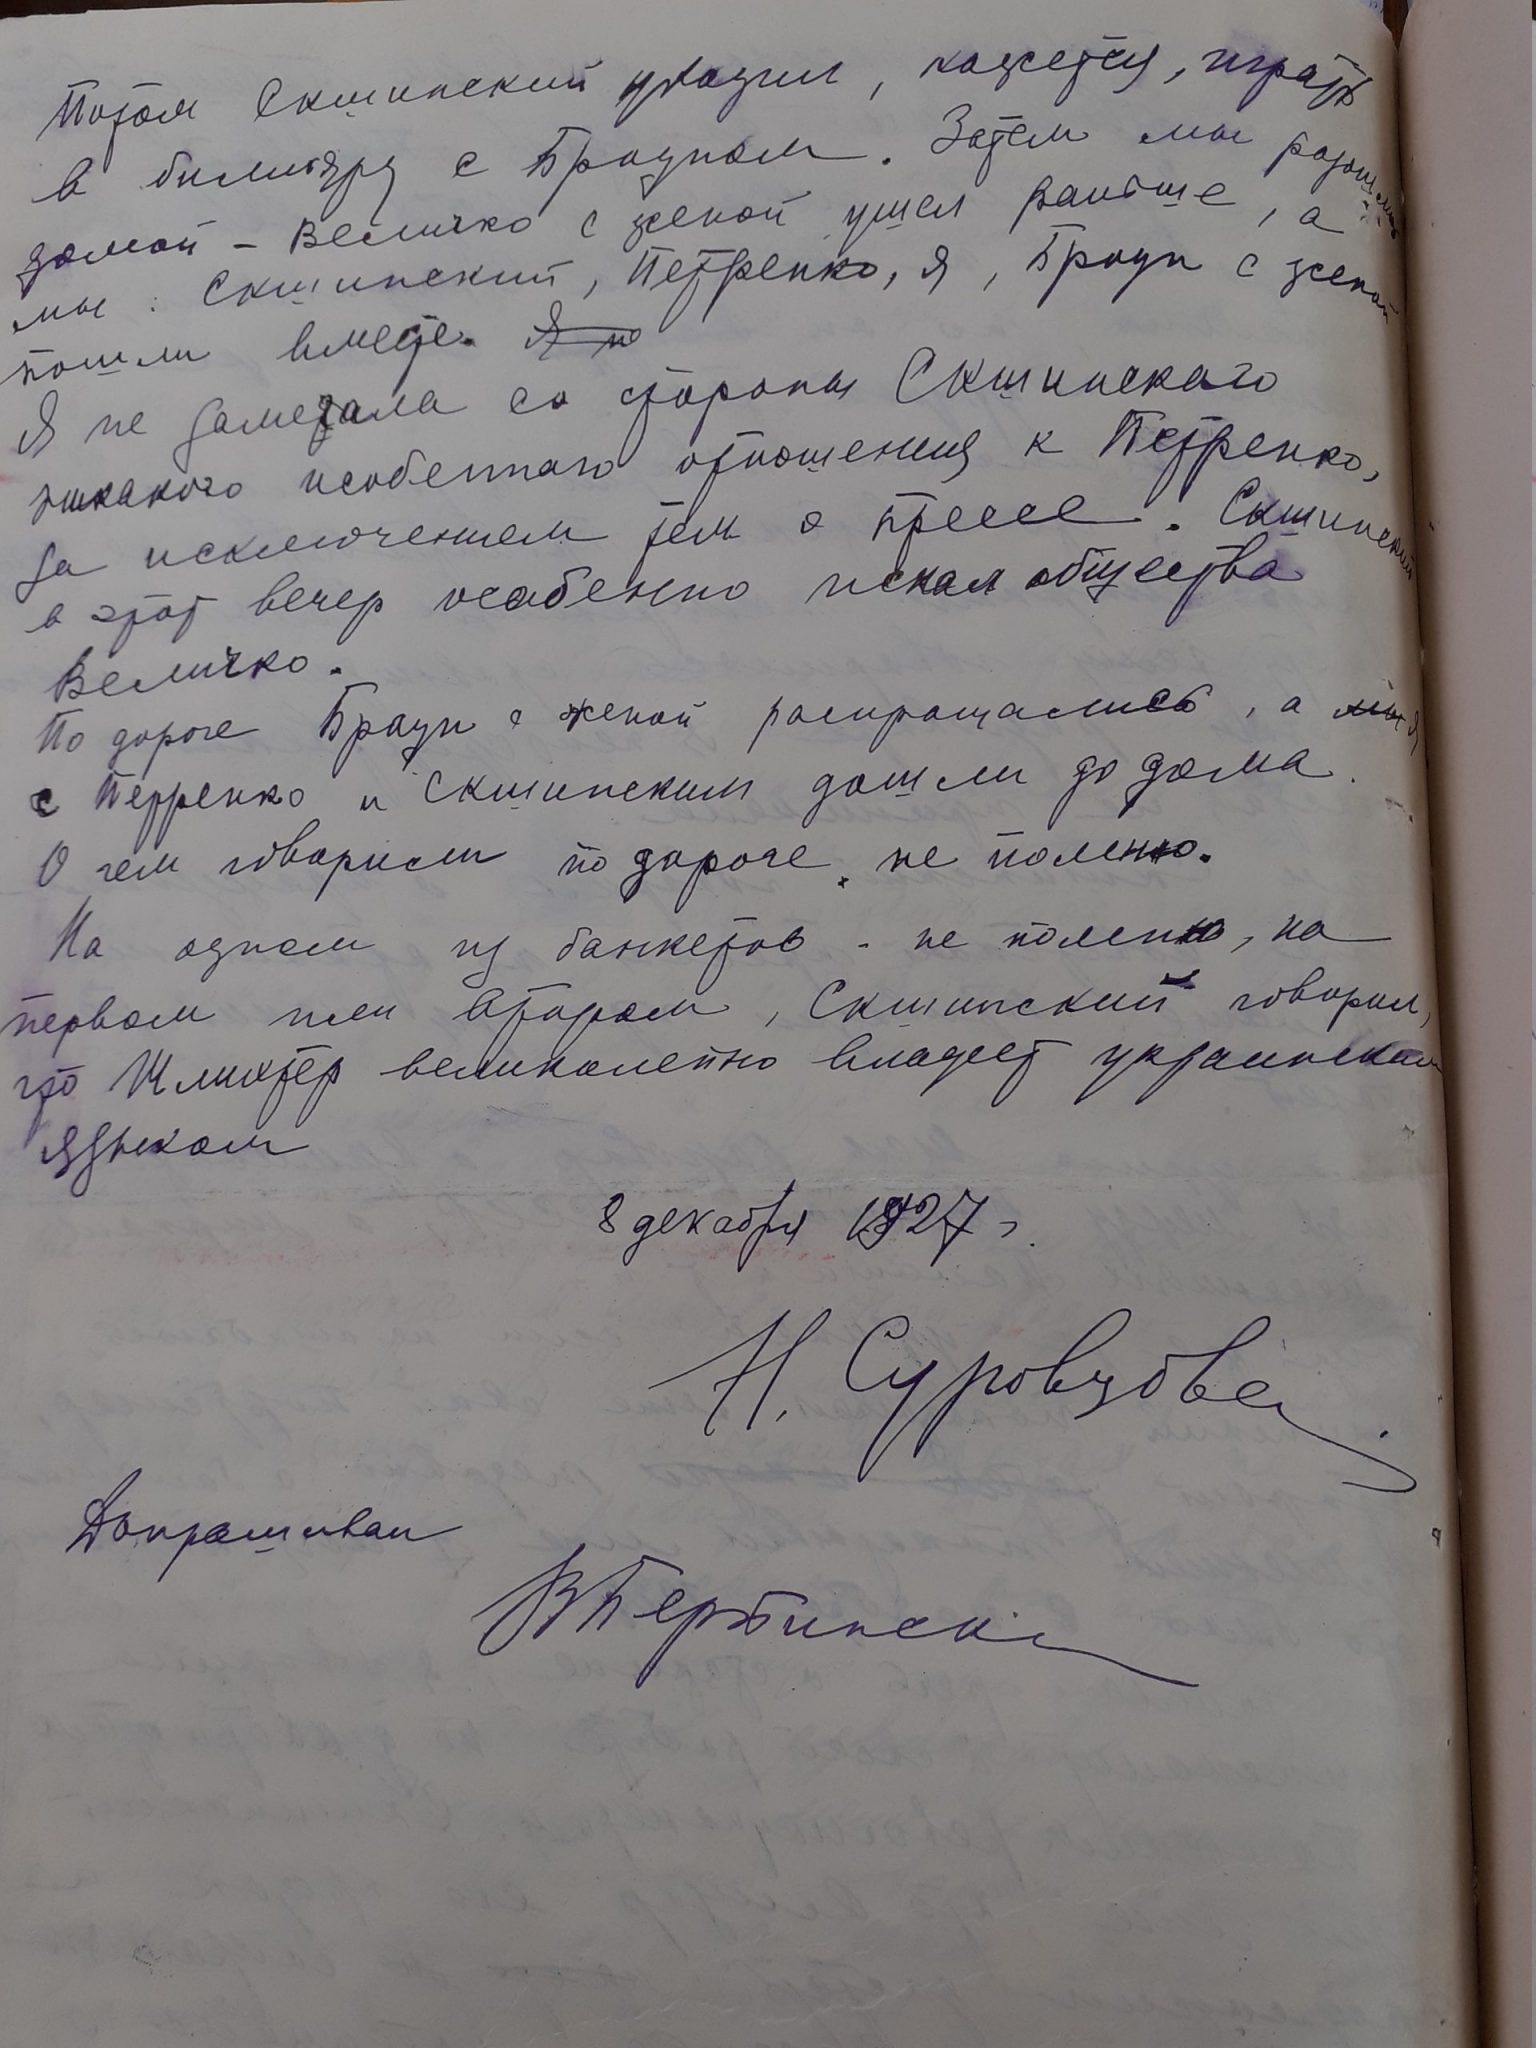 Потом Скшинский уходил, кажется, играть
в бильярд с Брауном. Затем мы разошлись
домой – Величко с женой ушел раньше, а
мы: Скшинский, Петренко, я, Браун с женой
пошли вместе. Я по
Я не замечала со стороны Скшинского
никакого особенного отношения к Петренко,
за исключением тем о прессе. Скшинский
в этот вечер особенно искал общества
Величко.
По дороге Браун с женой распрощались, а мы я
с Петренко и Скшинским дошли до дома.
О чем говорили по дороге, не помню.
На одном из банкетов - не помню, на
первом или втором, Скшинский говорил,
что Шлихтер великолепно владеет украинским
языком
8 декабря 1927 г.
Н. Суровцова
Допрашивал